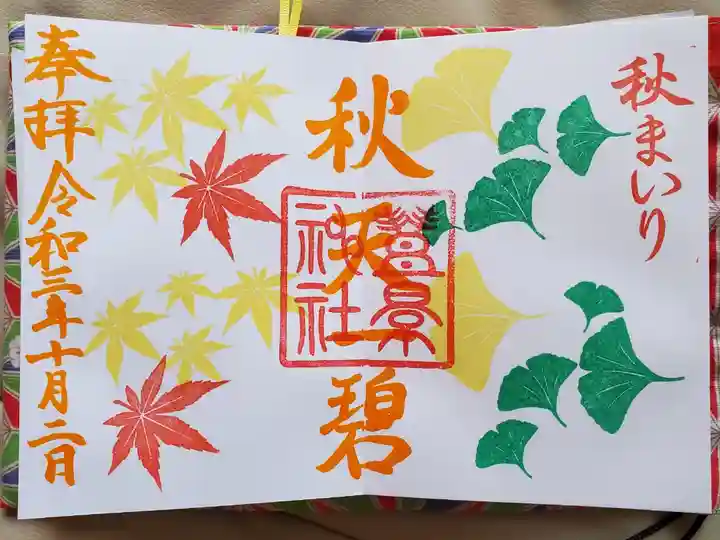 秋まいり
秋天一碧
豐景
神社
奉拝 令和三年十月二日